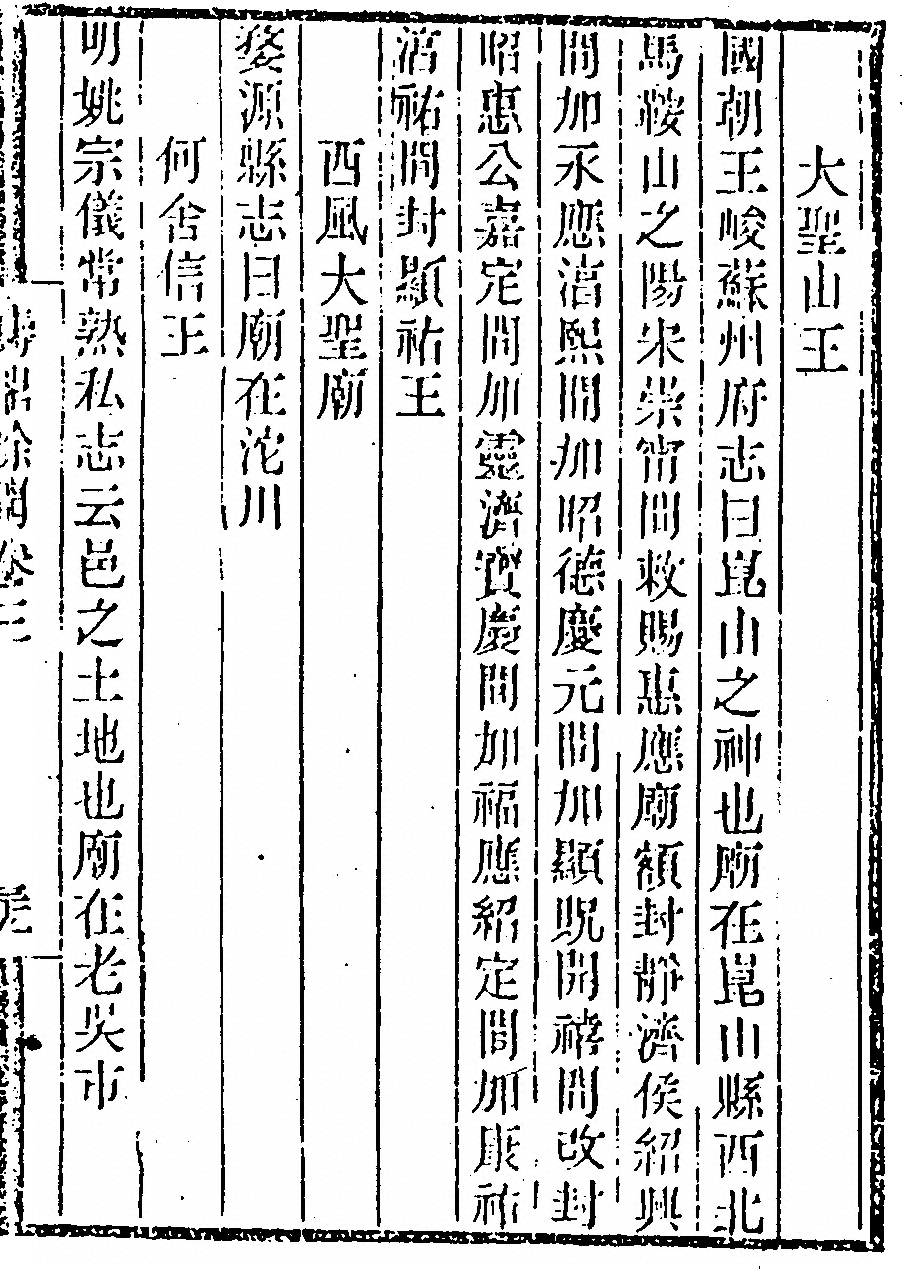 大聖山王
國朝王峻蘇州府志曰崑山之神也廟在崑山縣西北
馬鞍山之陽宋崇甯間敕賜惠應廟額封靜濟侯紹興
間加永應淳熙間加昭德慶元間加顯貺開禧間改封
昭惠公嘉定間加靈濟寶慶間加福應紹定間加康祐
淳祐間封顯祐王
西風大聖廟
婺源縣志曰廟在沱川
何舍信王
明姚宗儀常熟私志云邑之土地也廟在老吳市
餘聞卷三